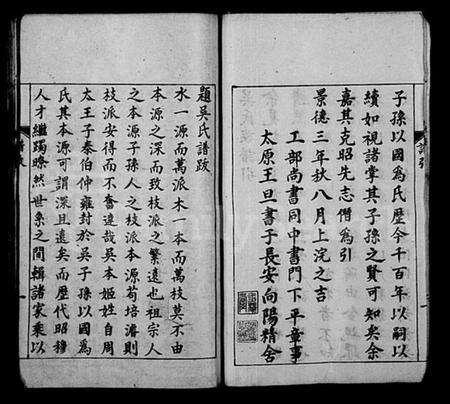 子孫以國爲氏歷今千百年以嗣以
續如視諸掌其子孫之賢可知矣余
嘉其克昭先志僭爲引
景德三年秋八月上浣之吉
工部尚書同中書門下平章事
太原王旦書于長安向陽精舍
題吳氏譜跋
水一源而萬派木一本而萬枝莫不由
本源之深而致枝派之繁遠也祖宗人
之本源子孫人之枝派本源苟培濬則
枝派安得而不香遠哉吳本姬姓自周
太王子泰伯仲雍封於吳子孫以國爲
氏其本源可謂深且遠矣而歷代昭穆
人才繼躅瞭然世系之間輯諸家乘以